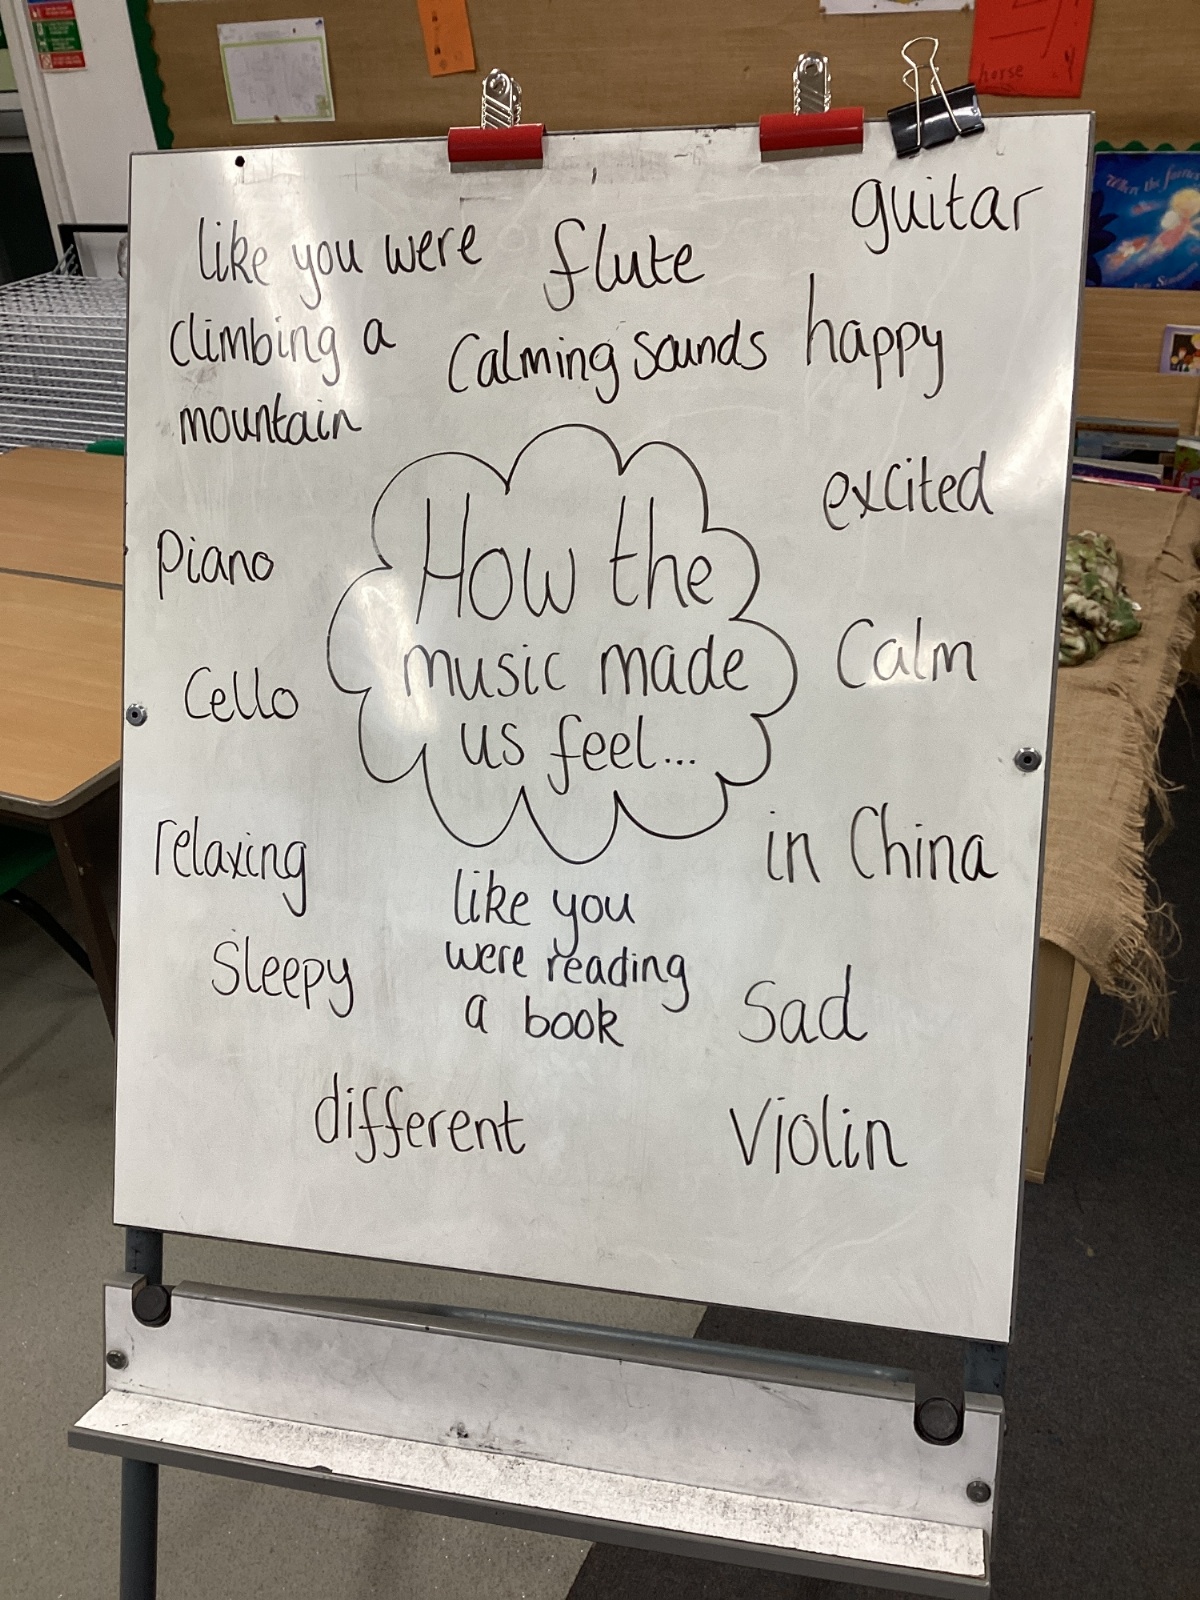 guitar
like you were
climbing a
mountain
flute
Calming sounds
happy
excited
Piano
How the
music made
us feel...
Calm
Cello
in China
relaxing
like you
were reading
a book
Sleepy
Sad
different
Violin
horse